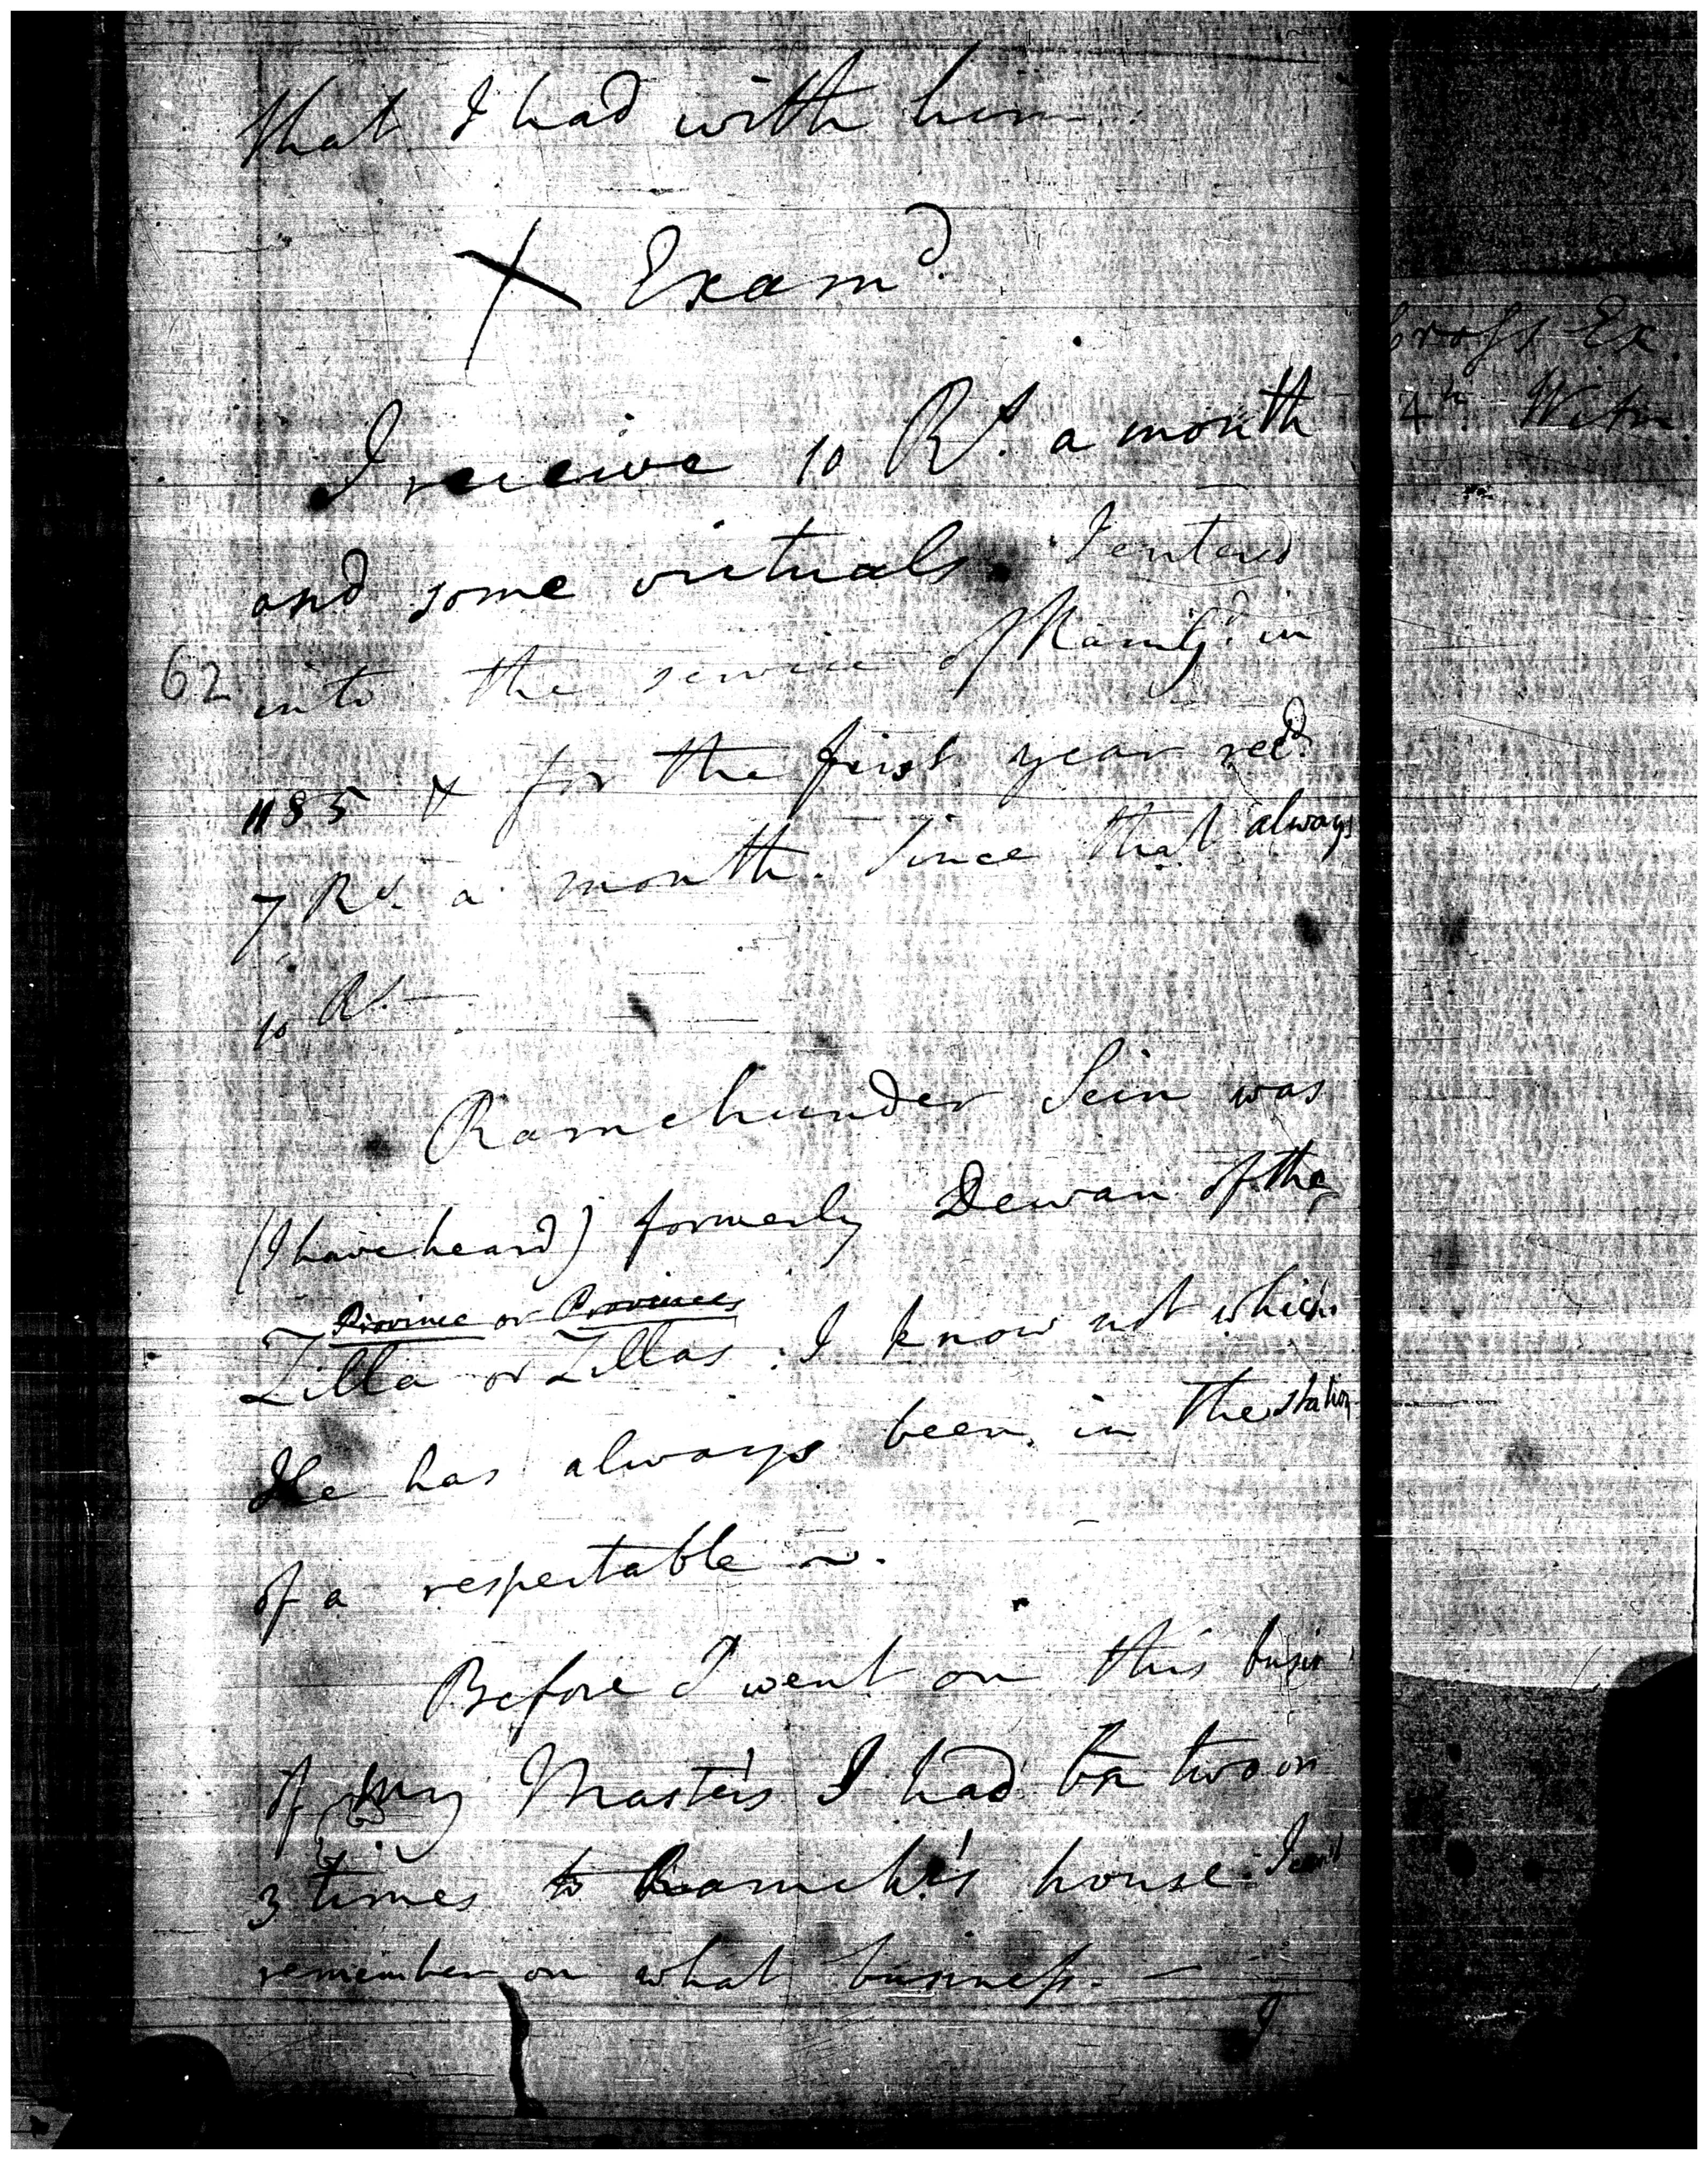 that I had with him.
X Examd.
Cross Ex.
4th Witn.
I receive 10 Rs. a month
and some victuals. I entered
62
into the service of in
1185 & for the first year recd.
7 Rs. a month. Since that always
10 Rs. —
Ramchunder Sein was
(I have heard) formerly Dewan of the
Province or Provinces
Zilla or Zillas : I know not which
He has always been in the station
of a respectable
Before I went on this busin
of my Master's I had bn two or
3 times to Ramch's house. I can't
remember on what business. —
I